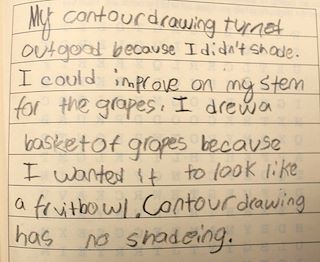 My contour drawing turnet
out good because I didn't shade.
I could improve on my stem
for the grapes. I drew a
basket of grapes because
I wanted it to look like
a fruit bowl. Contour drawing
has no shadeing.